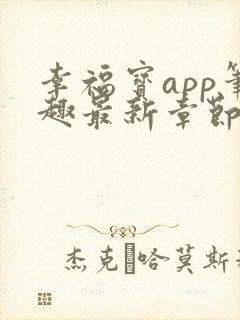 幸福宝app笔
趣最新章节
杰克 哈莫斯